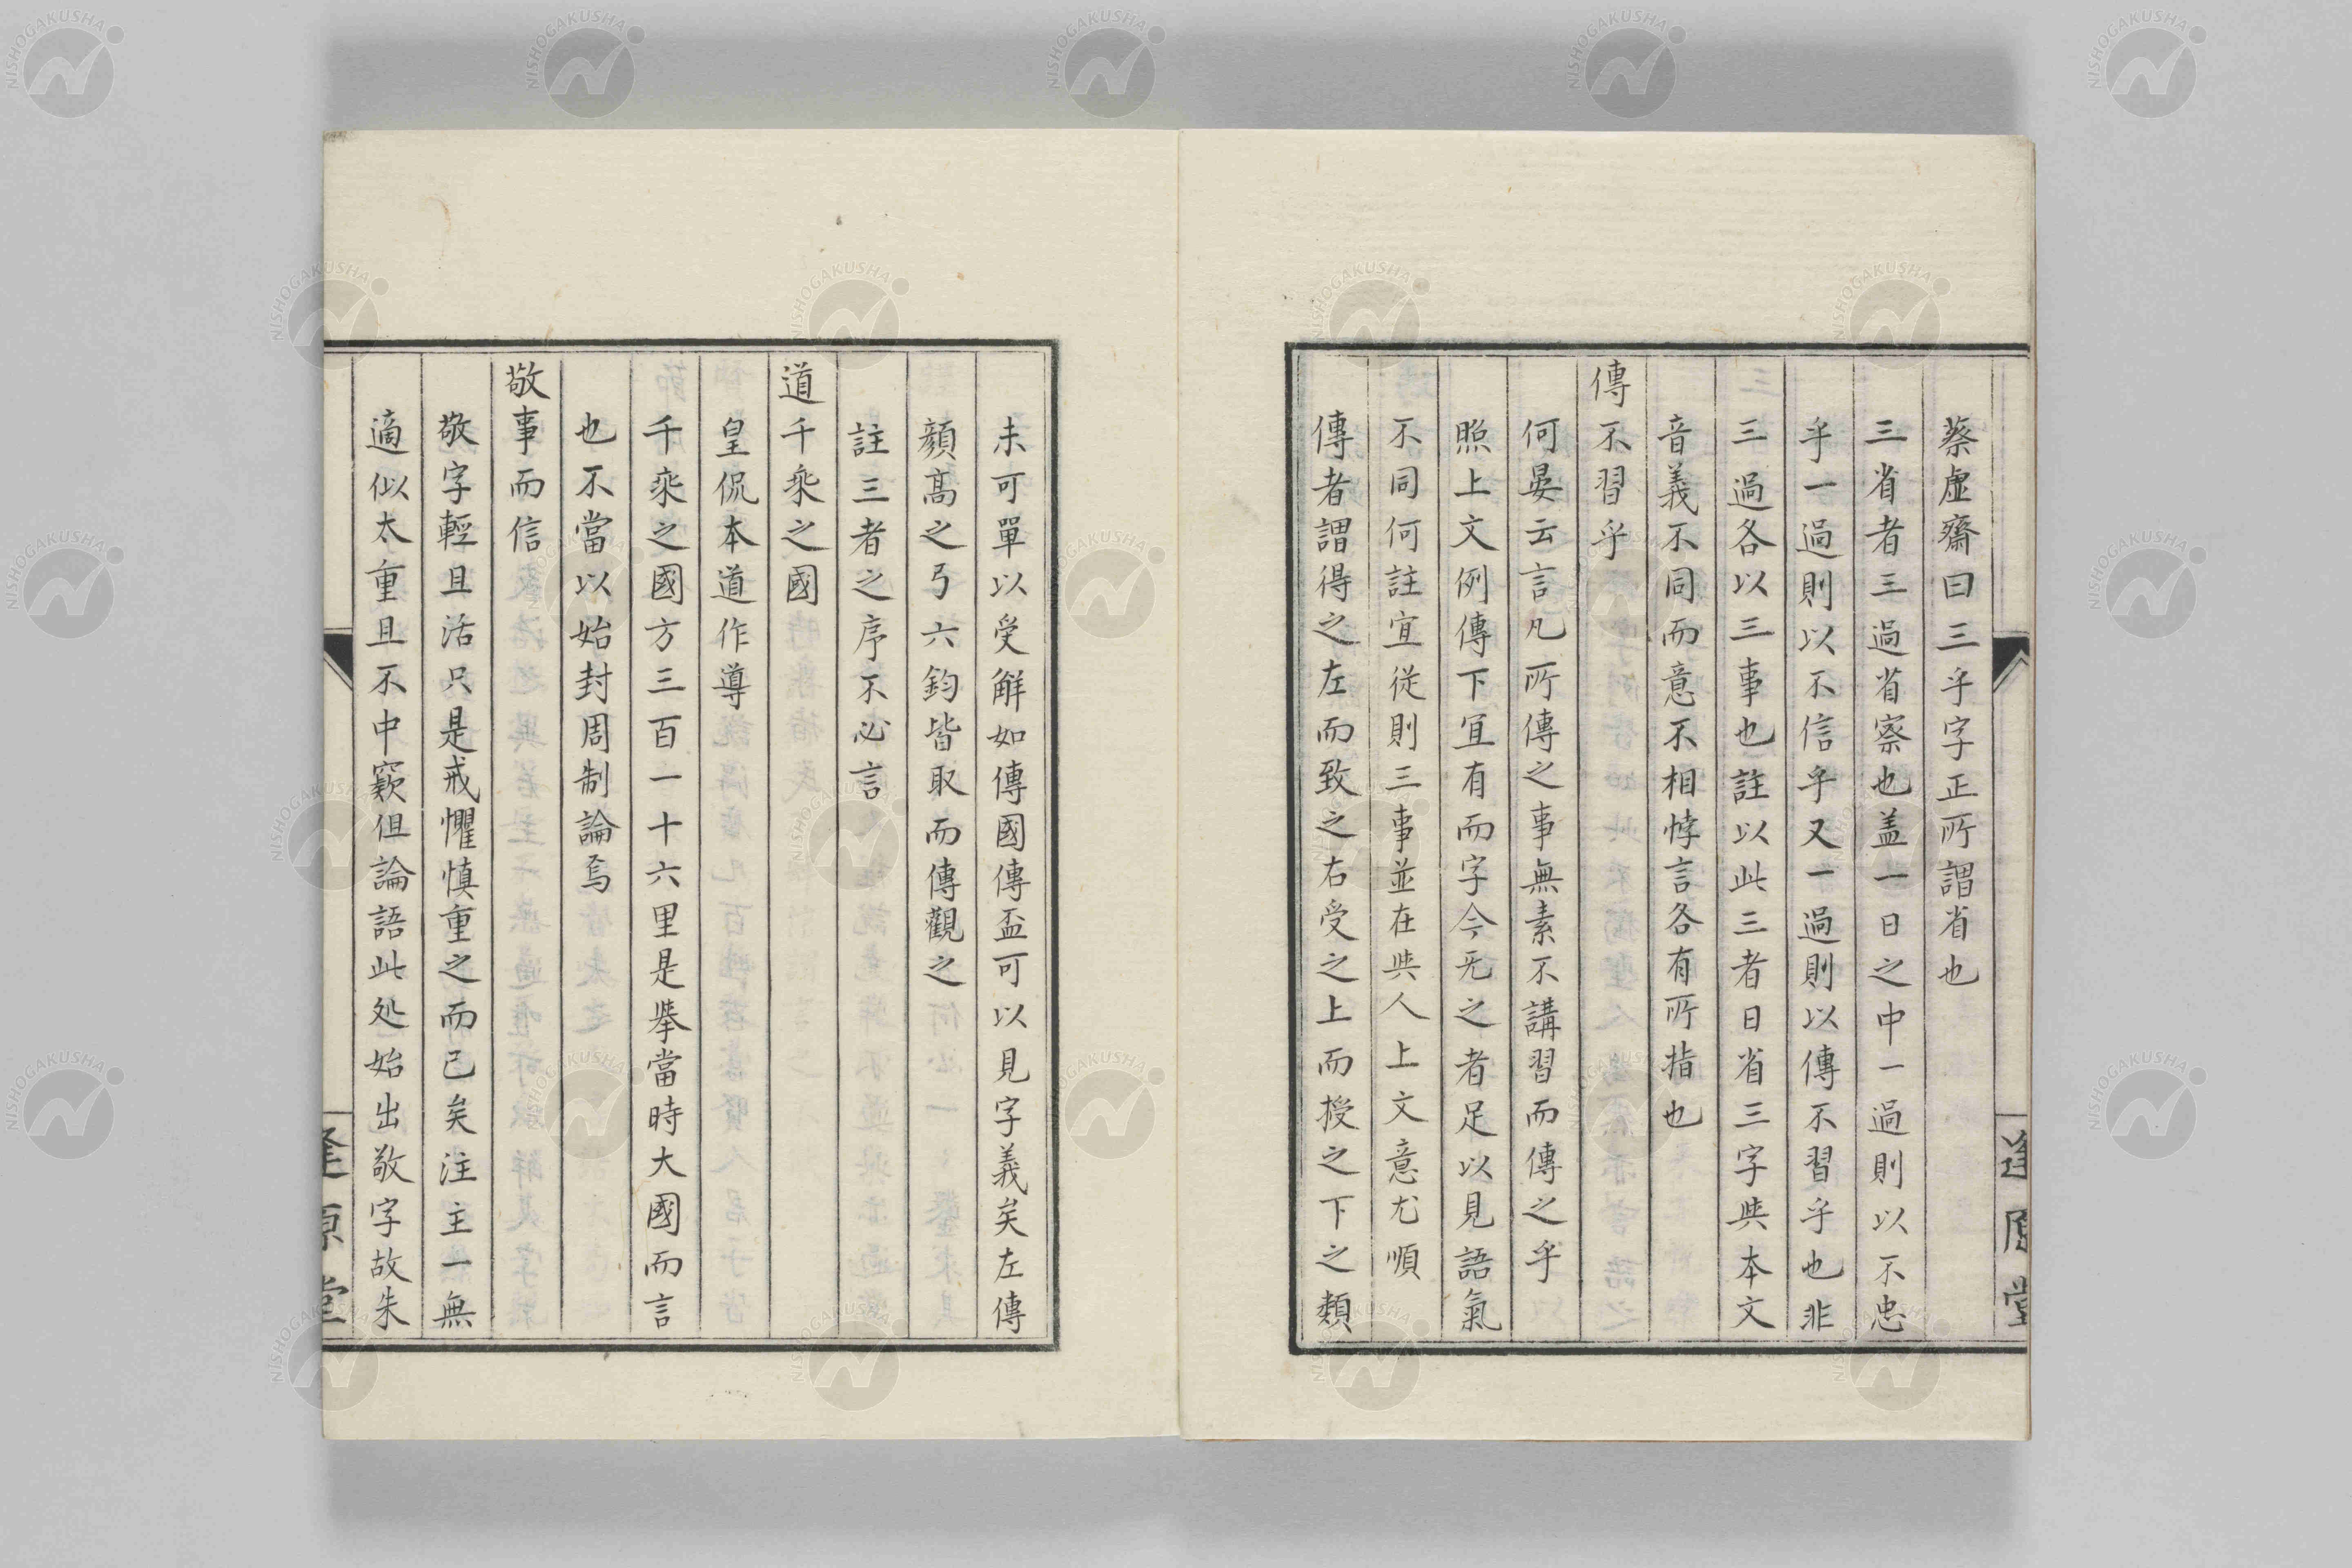 蔡虛齋曰三乎字正所謂省也
三省者三過省察也盖一日之中一過則以不忠
乎一過則以不信乎又一過則以傳不習乎也非
三過各以三事也註以此三者日省三字與本文
音義不同而意不相悖言各有所指也
傳不習乎
何晏云言凡所傳之事無素不講習而傳之乎
照上文例傳下宜有而字今无之者足以見語氣
不同何註宜從則三事並在與人上文意尤順
傳者謂得之左而致之右受之上而授之下之類
未可單以受解如傳國傳盃可以見字義矣左傳
顏高之弓六鈞皆取而傳觀之
註三者之序不必言
道千乘之國
皇侃本道作導
千乘之國方三百一十六里是擧當時大國而言
也不當以始封周制論焉
敬事而信
敬字輕且活只是戒懼慎重之而已矣注主一無
適似太重且不中窾但論語此処始出敬字故朱
逢原堂
逢原堂
NISHOGAKUSHA